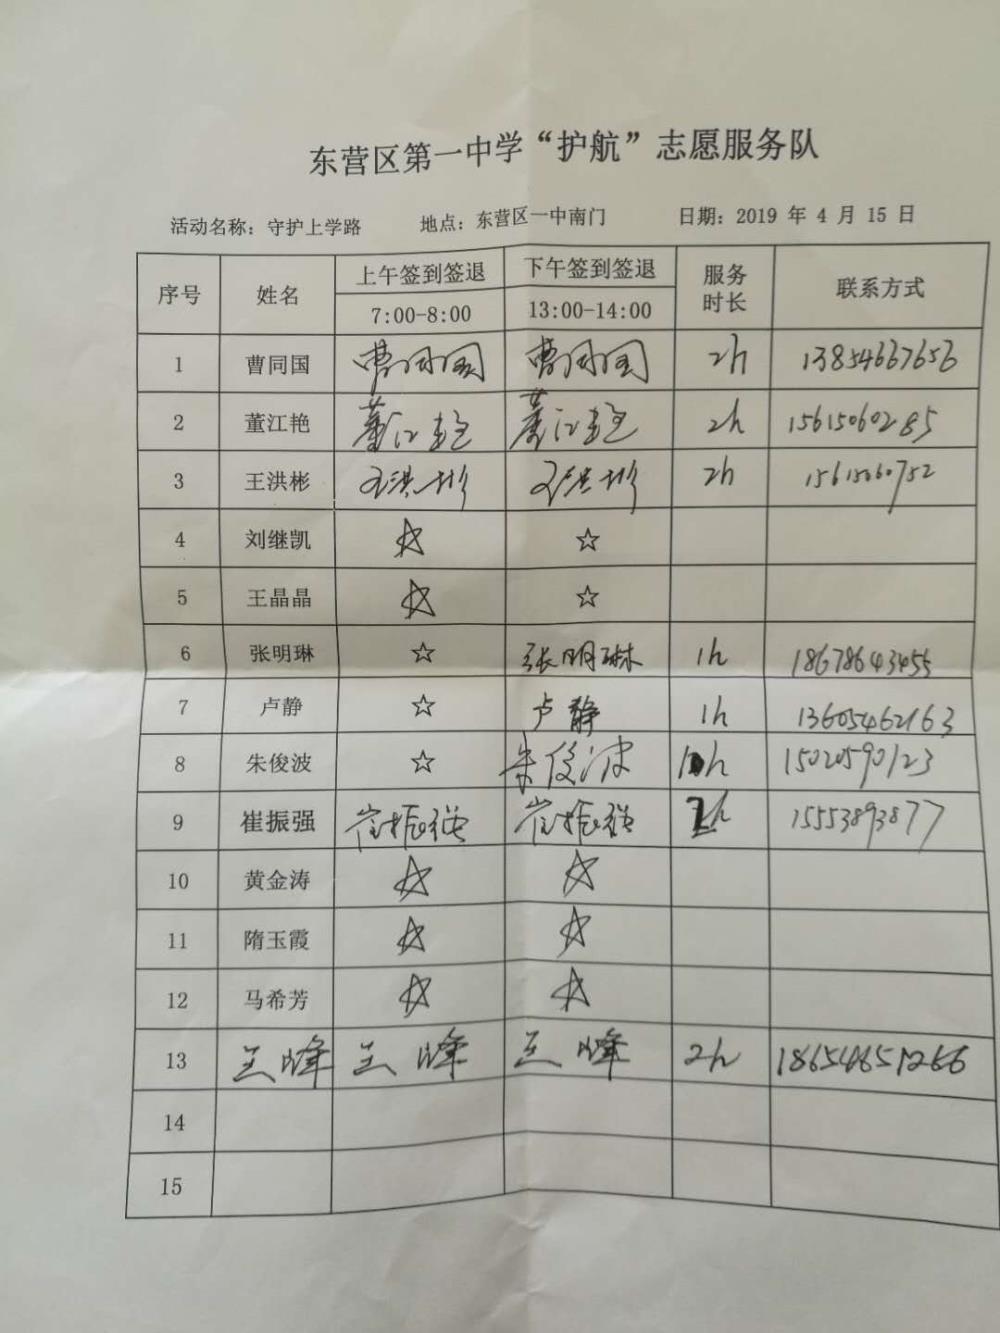 东营区第一中学“护航”志愿服务队
活动名称：守护上学路 地点：东营区一中南门 日期：2019 年 4 月 15 日
序号 姓名 上午签到签退 下午签到签退 服务时长 联系方式
7:00-8:00 13:00-14:00
1 曹同国 曹同国 曹同国 2h 13854667656
2 董江艳 董江艳 董江艳 2h 15615060285
3 王洪彬 王洪彬 王洪彬 2h 15615060752
4 刘继凯 ☆ ☆
5 王晶晶 ☆ ☆
6 张明琳 ☆ 张明琳 1h 18678643455
7 卢静 ☆ 卢静 1h 13605462163
8 朱俊波 ☆ 朱俊波 1h 15020590123
9 崔振强 崔振强 崔振强 2h 15553893877
10 黄金涛 ☆ ☆
11 隋玉霞 ☆ ☆
12 马希芳 ☆ ☆
13 王峰 王峰 王峰 2h 18654651266
14
15